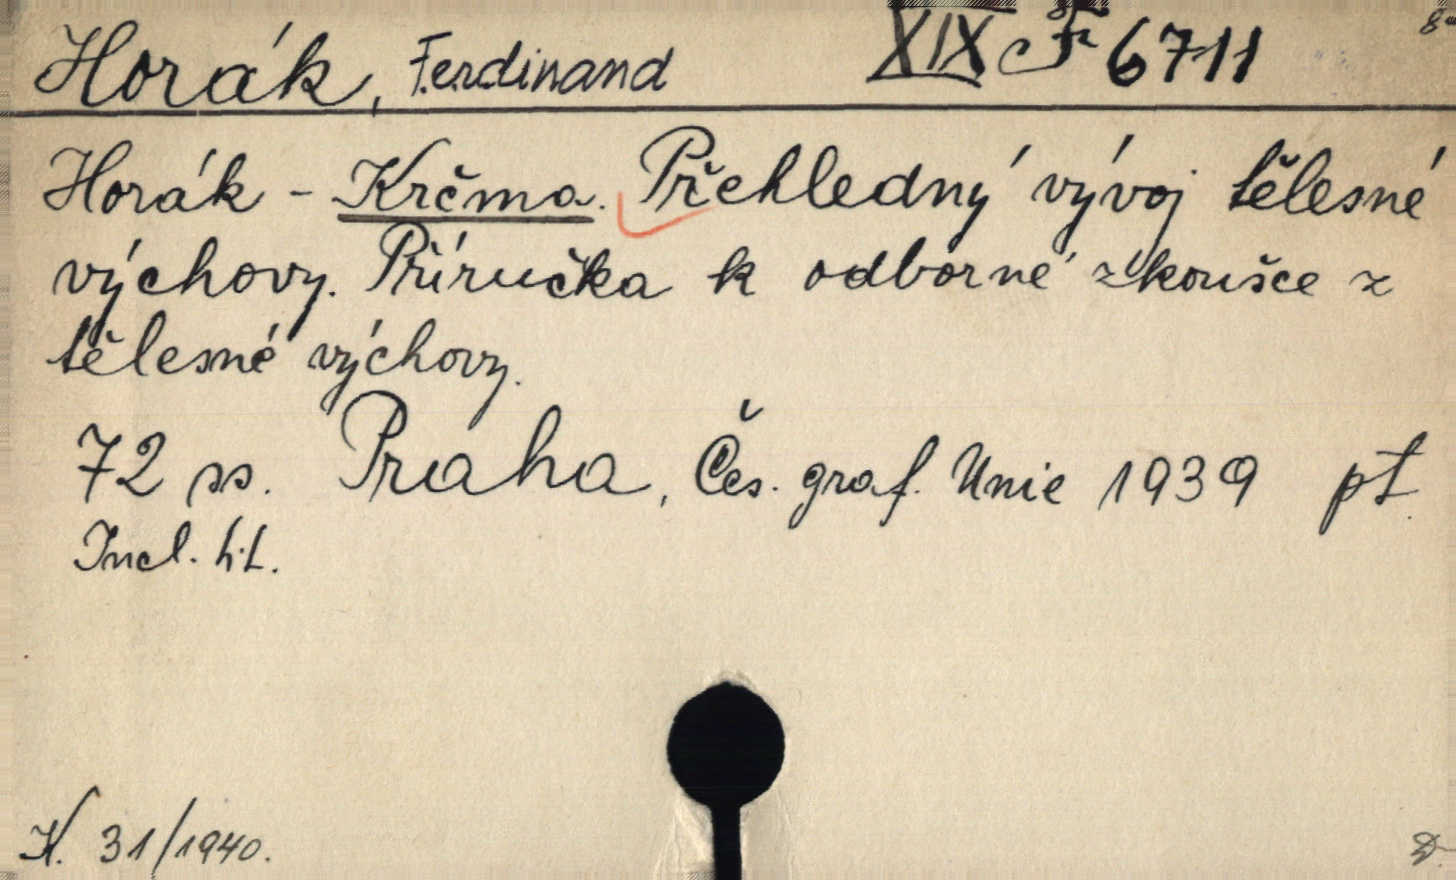 Horák, Ferdinand XIX F 6711
Horák - Krčma. Přehledný vývoj tělesné
výchovy. Příručka k odborné zkoušce z
tělesné výchovy.
72 ss. Praha, Čes. graf. Unie 1939 pt.
Incl. lit.
K. 31/1940. D.